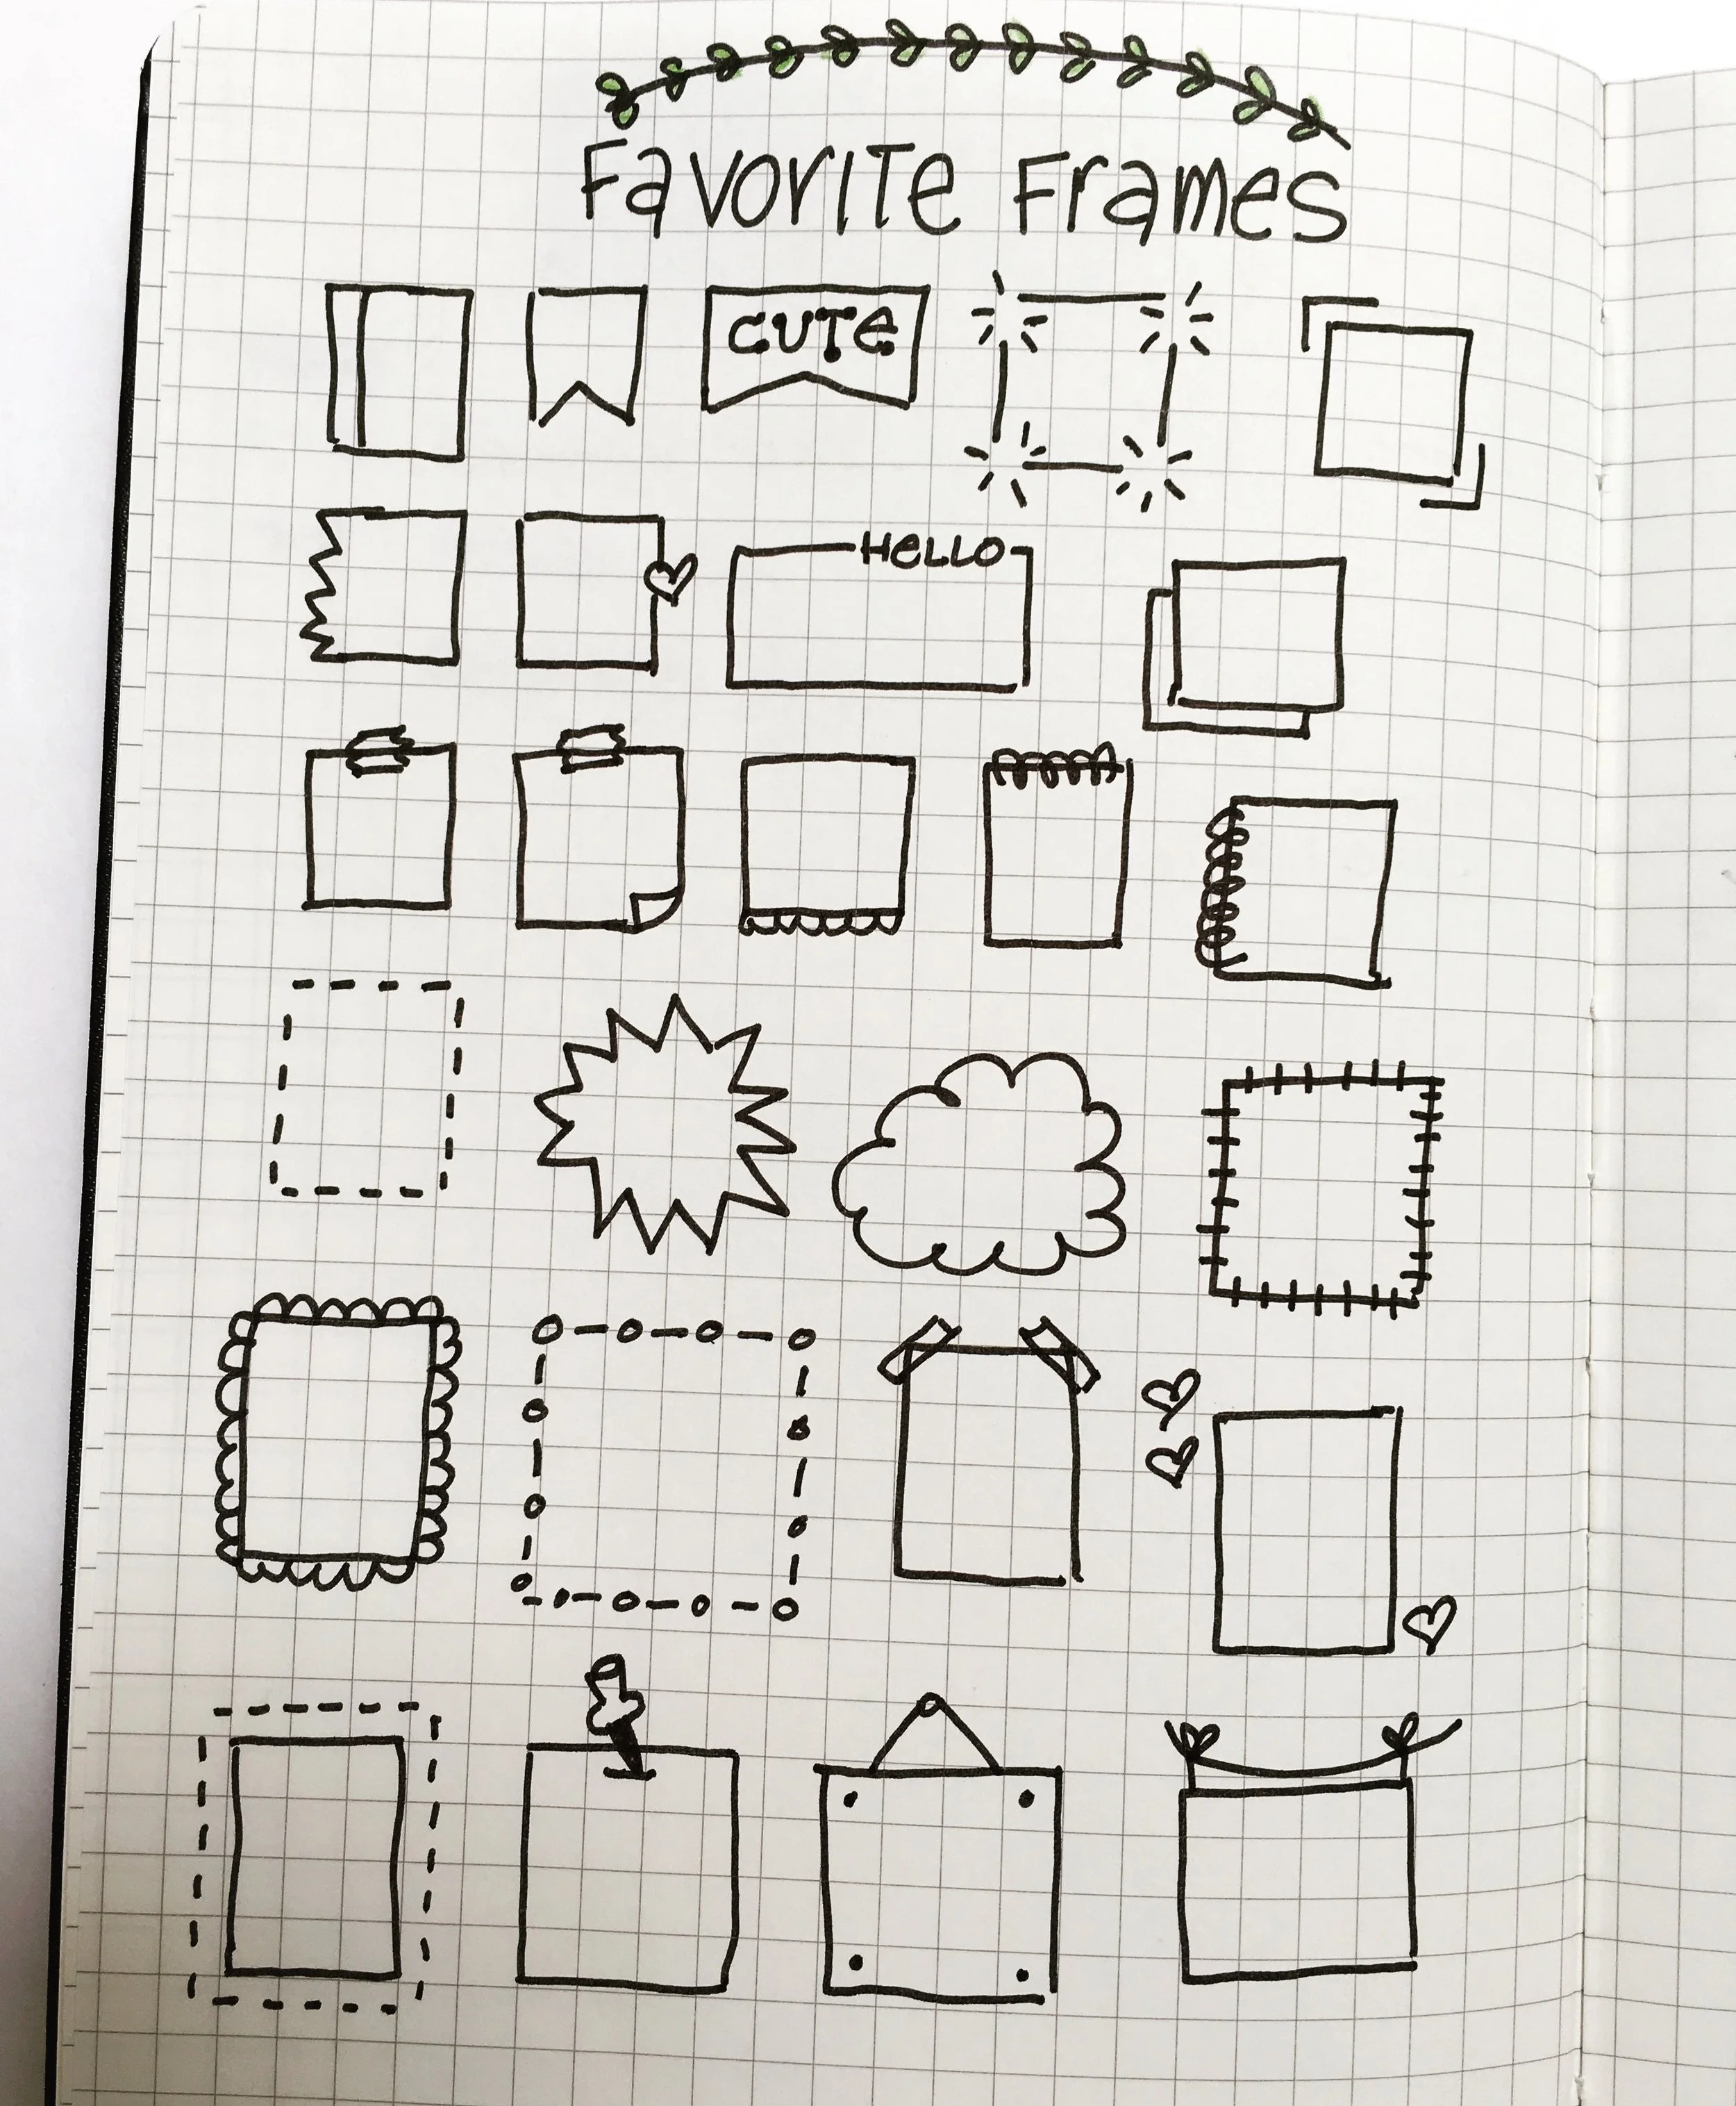 FavoriTe Frames
CUTe
HeLLO